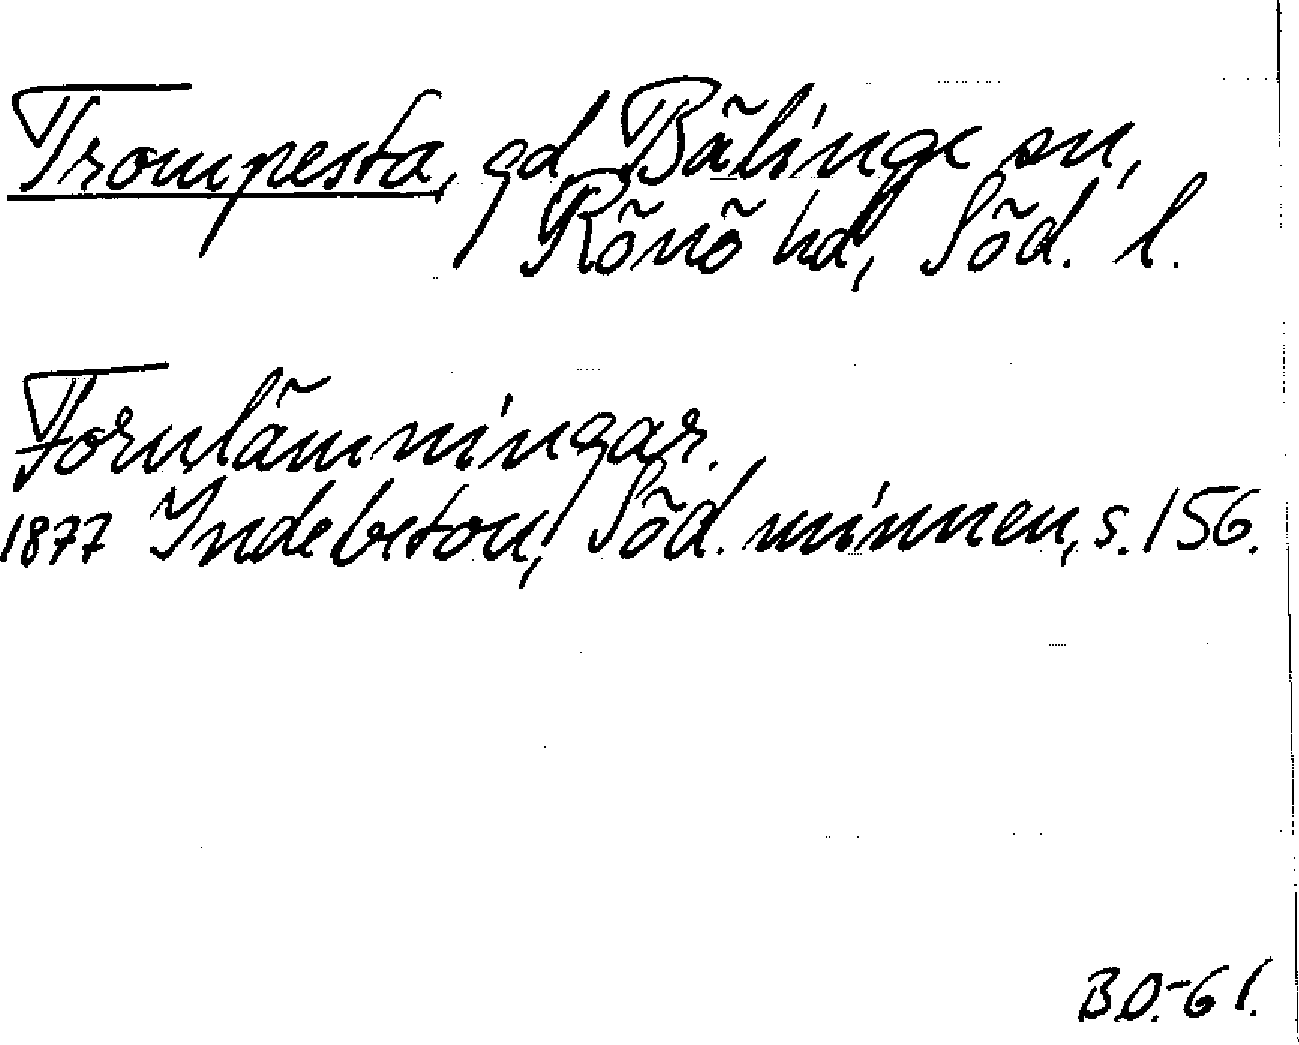 Trompesta, gd Bälinge sn,
Rönö hd, Söd. l.
Fornlämningar.
1877 Indebetou, Söd. minnen, s. 156.
B.O.-61.